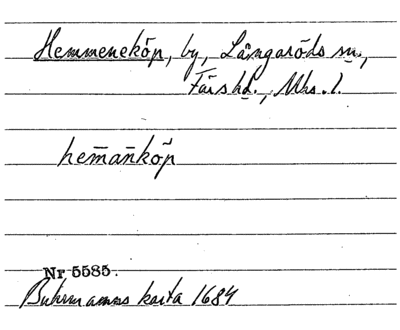 Hemmeneköp, by, Långaröds sn.,
Färs hd., Mhs. l.
hem̄an̄köp
Nr 5585.
Buhrmanns karta 1684